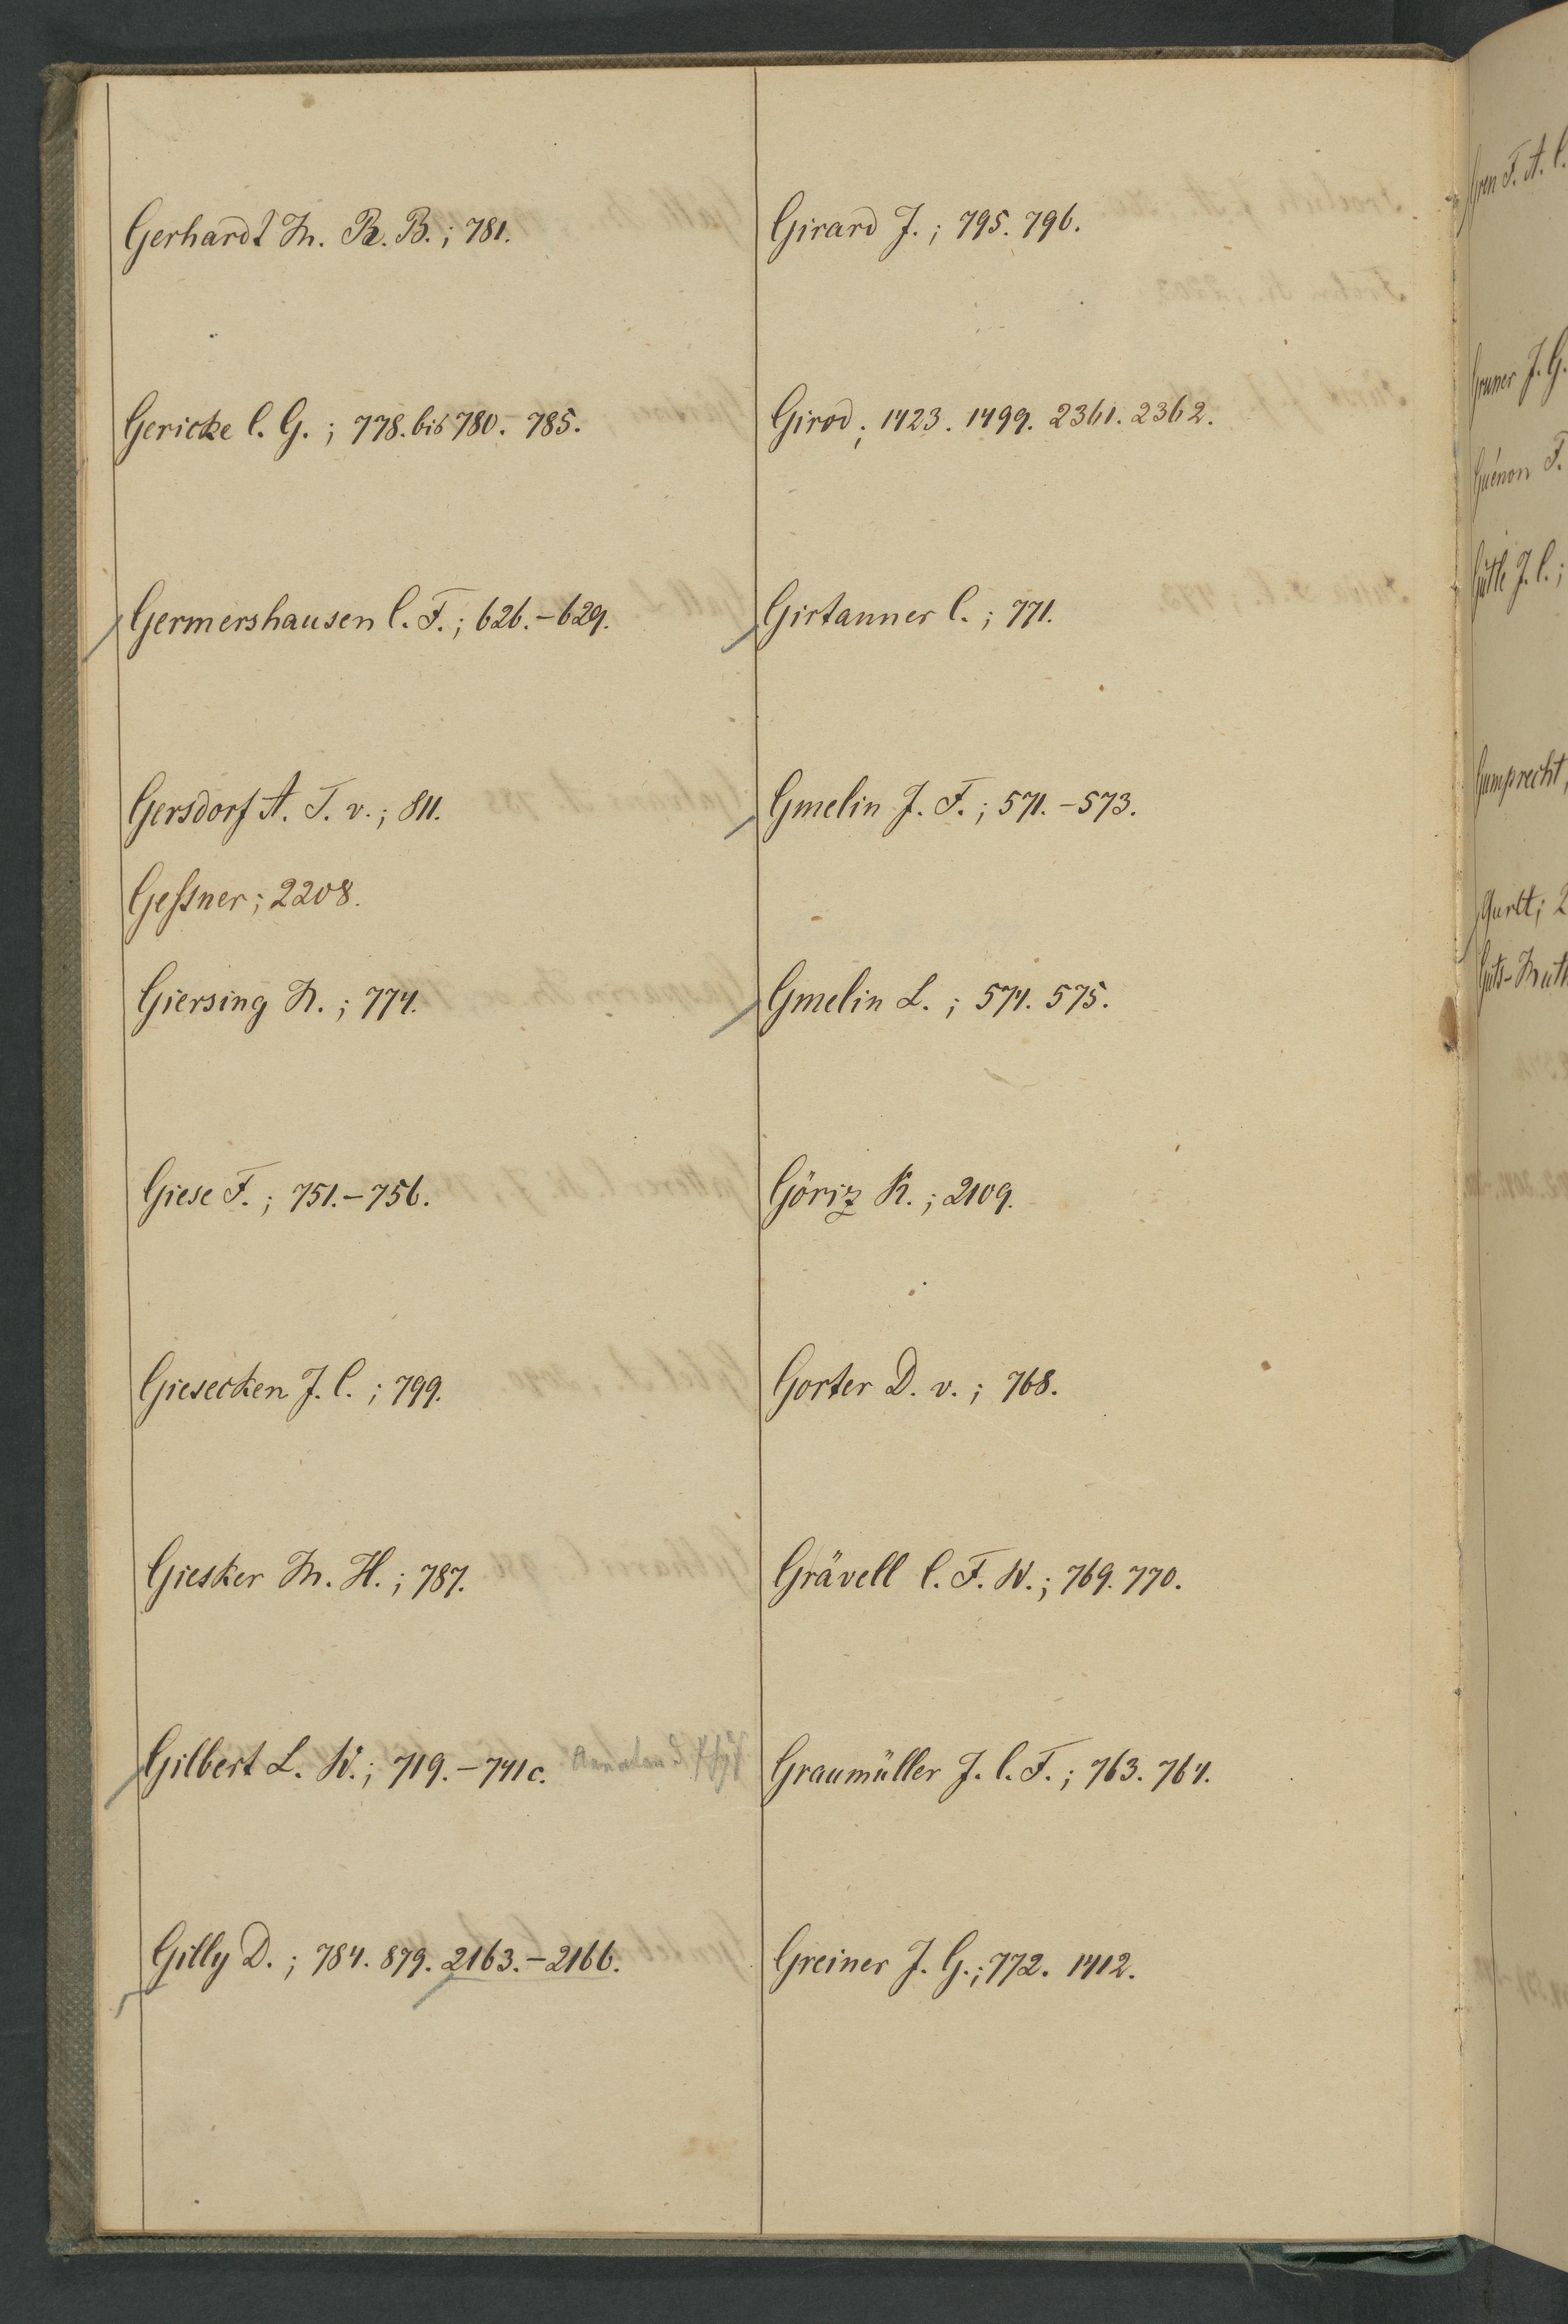 Gerhardt M. R. B.; 781.
Gericke C. G.; 778. bis 780. 785.
Germershausen C. F.; 626.-629.
Gersdorf A. T. v.; 811.
Geſsner; 2208.
Giersing M.; 774.
Giese F.; 751.-756.
Giesecken J. C.; 799.
Giesker M. H.; 787.
Gilbert L. W.; 719.-741c. Annalen d. Phys
Gilly D.; 784. 879. 2163.-2166.
Girard J.; 795. 796.
Girod; 1423. 1499. 2361. 2362.
Girtanner C.; 771.
Gmelin J. F.; 571.-573.
Gmelin L.; 574. 575.
Göriz K.; 2109.
Gorter D. v.; 768.
Grävell C. F. W.; 769. 770.
Graumüller J. C. F.; 763. 764.
Greiner J. G.; 772. 1412.
Gren F. A. C.
Gruner J. G.
Guénon F.
Gütle J. C.;
Gumprecht,
Gurlt; 2
Guts-Muth